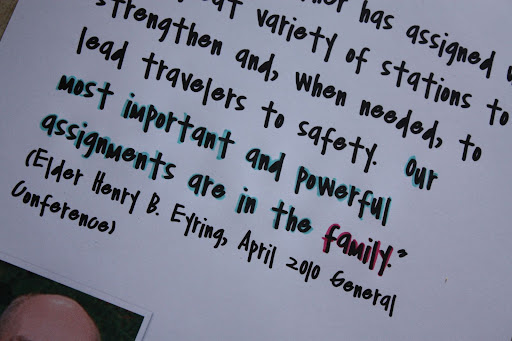 has assigned
variety of stations to
strengthen and, when needed, to
lead travelers to safety. Our
most important and powerful
assignments are in the family."
(Elder Henry B. Eyring, April 2010 General
Conference)